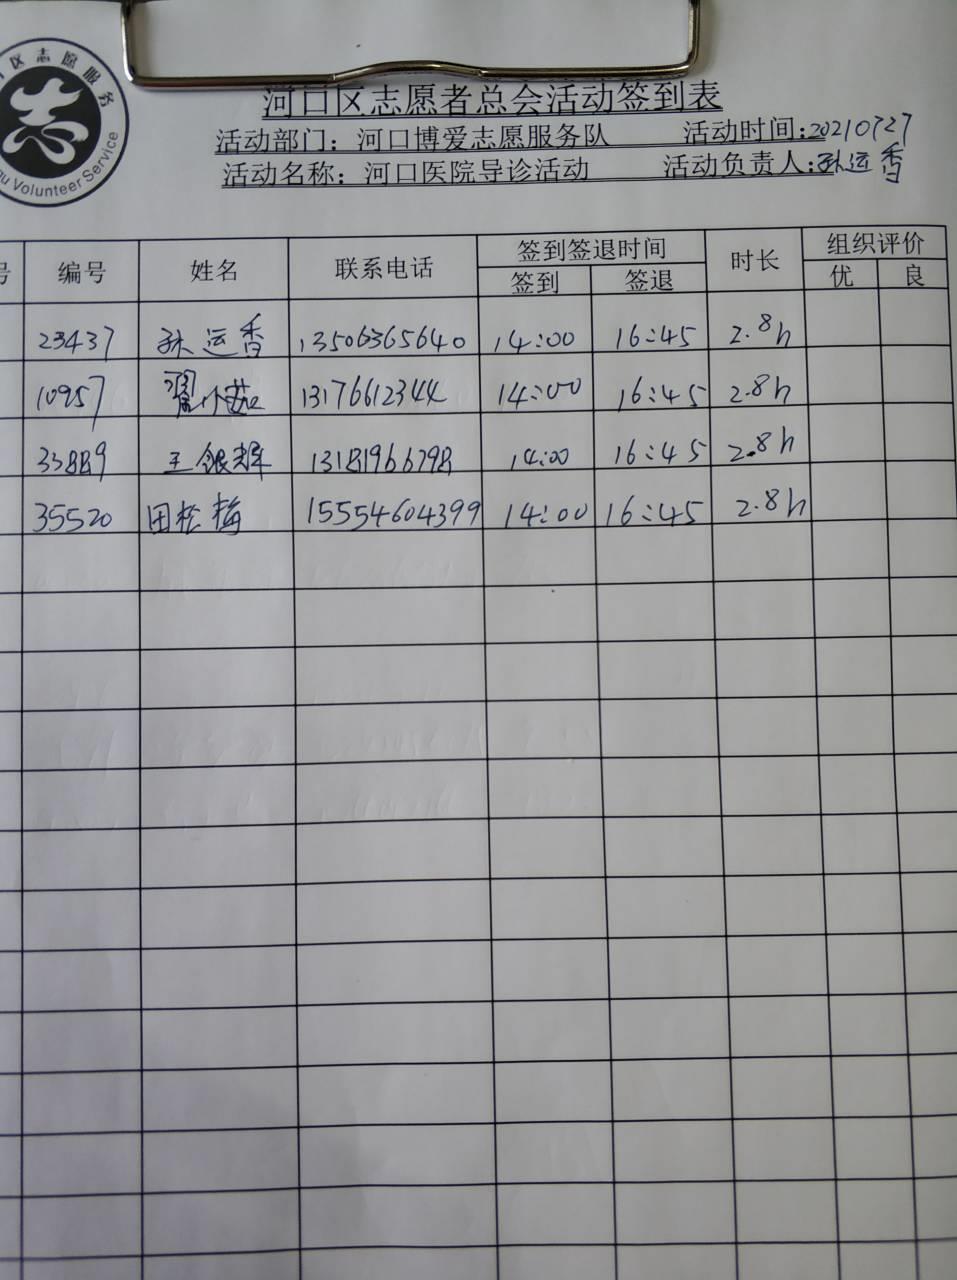 区志愿服务
志
Volunteer Service
河口区志愿者总会活动签到表
活动部门：河口博爱志愿服务队 活动时间:20210727
活动名称：河口医院导诊活动 活动负责人:孙运香
号 编号 姓名 联系电话 签到签退时间 时长 组织评价
签到 签退 优 良
23437 孙运香 13506365640 14:00 16:45 2.8h
10957 小茹 13176612344 14:00 16:45 2.8h
33889 王银辉 13181966798 14:00 16:45 2.8h
35520 田松梅 15554604399 14:00 16:45 2.8h